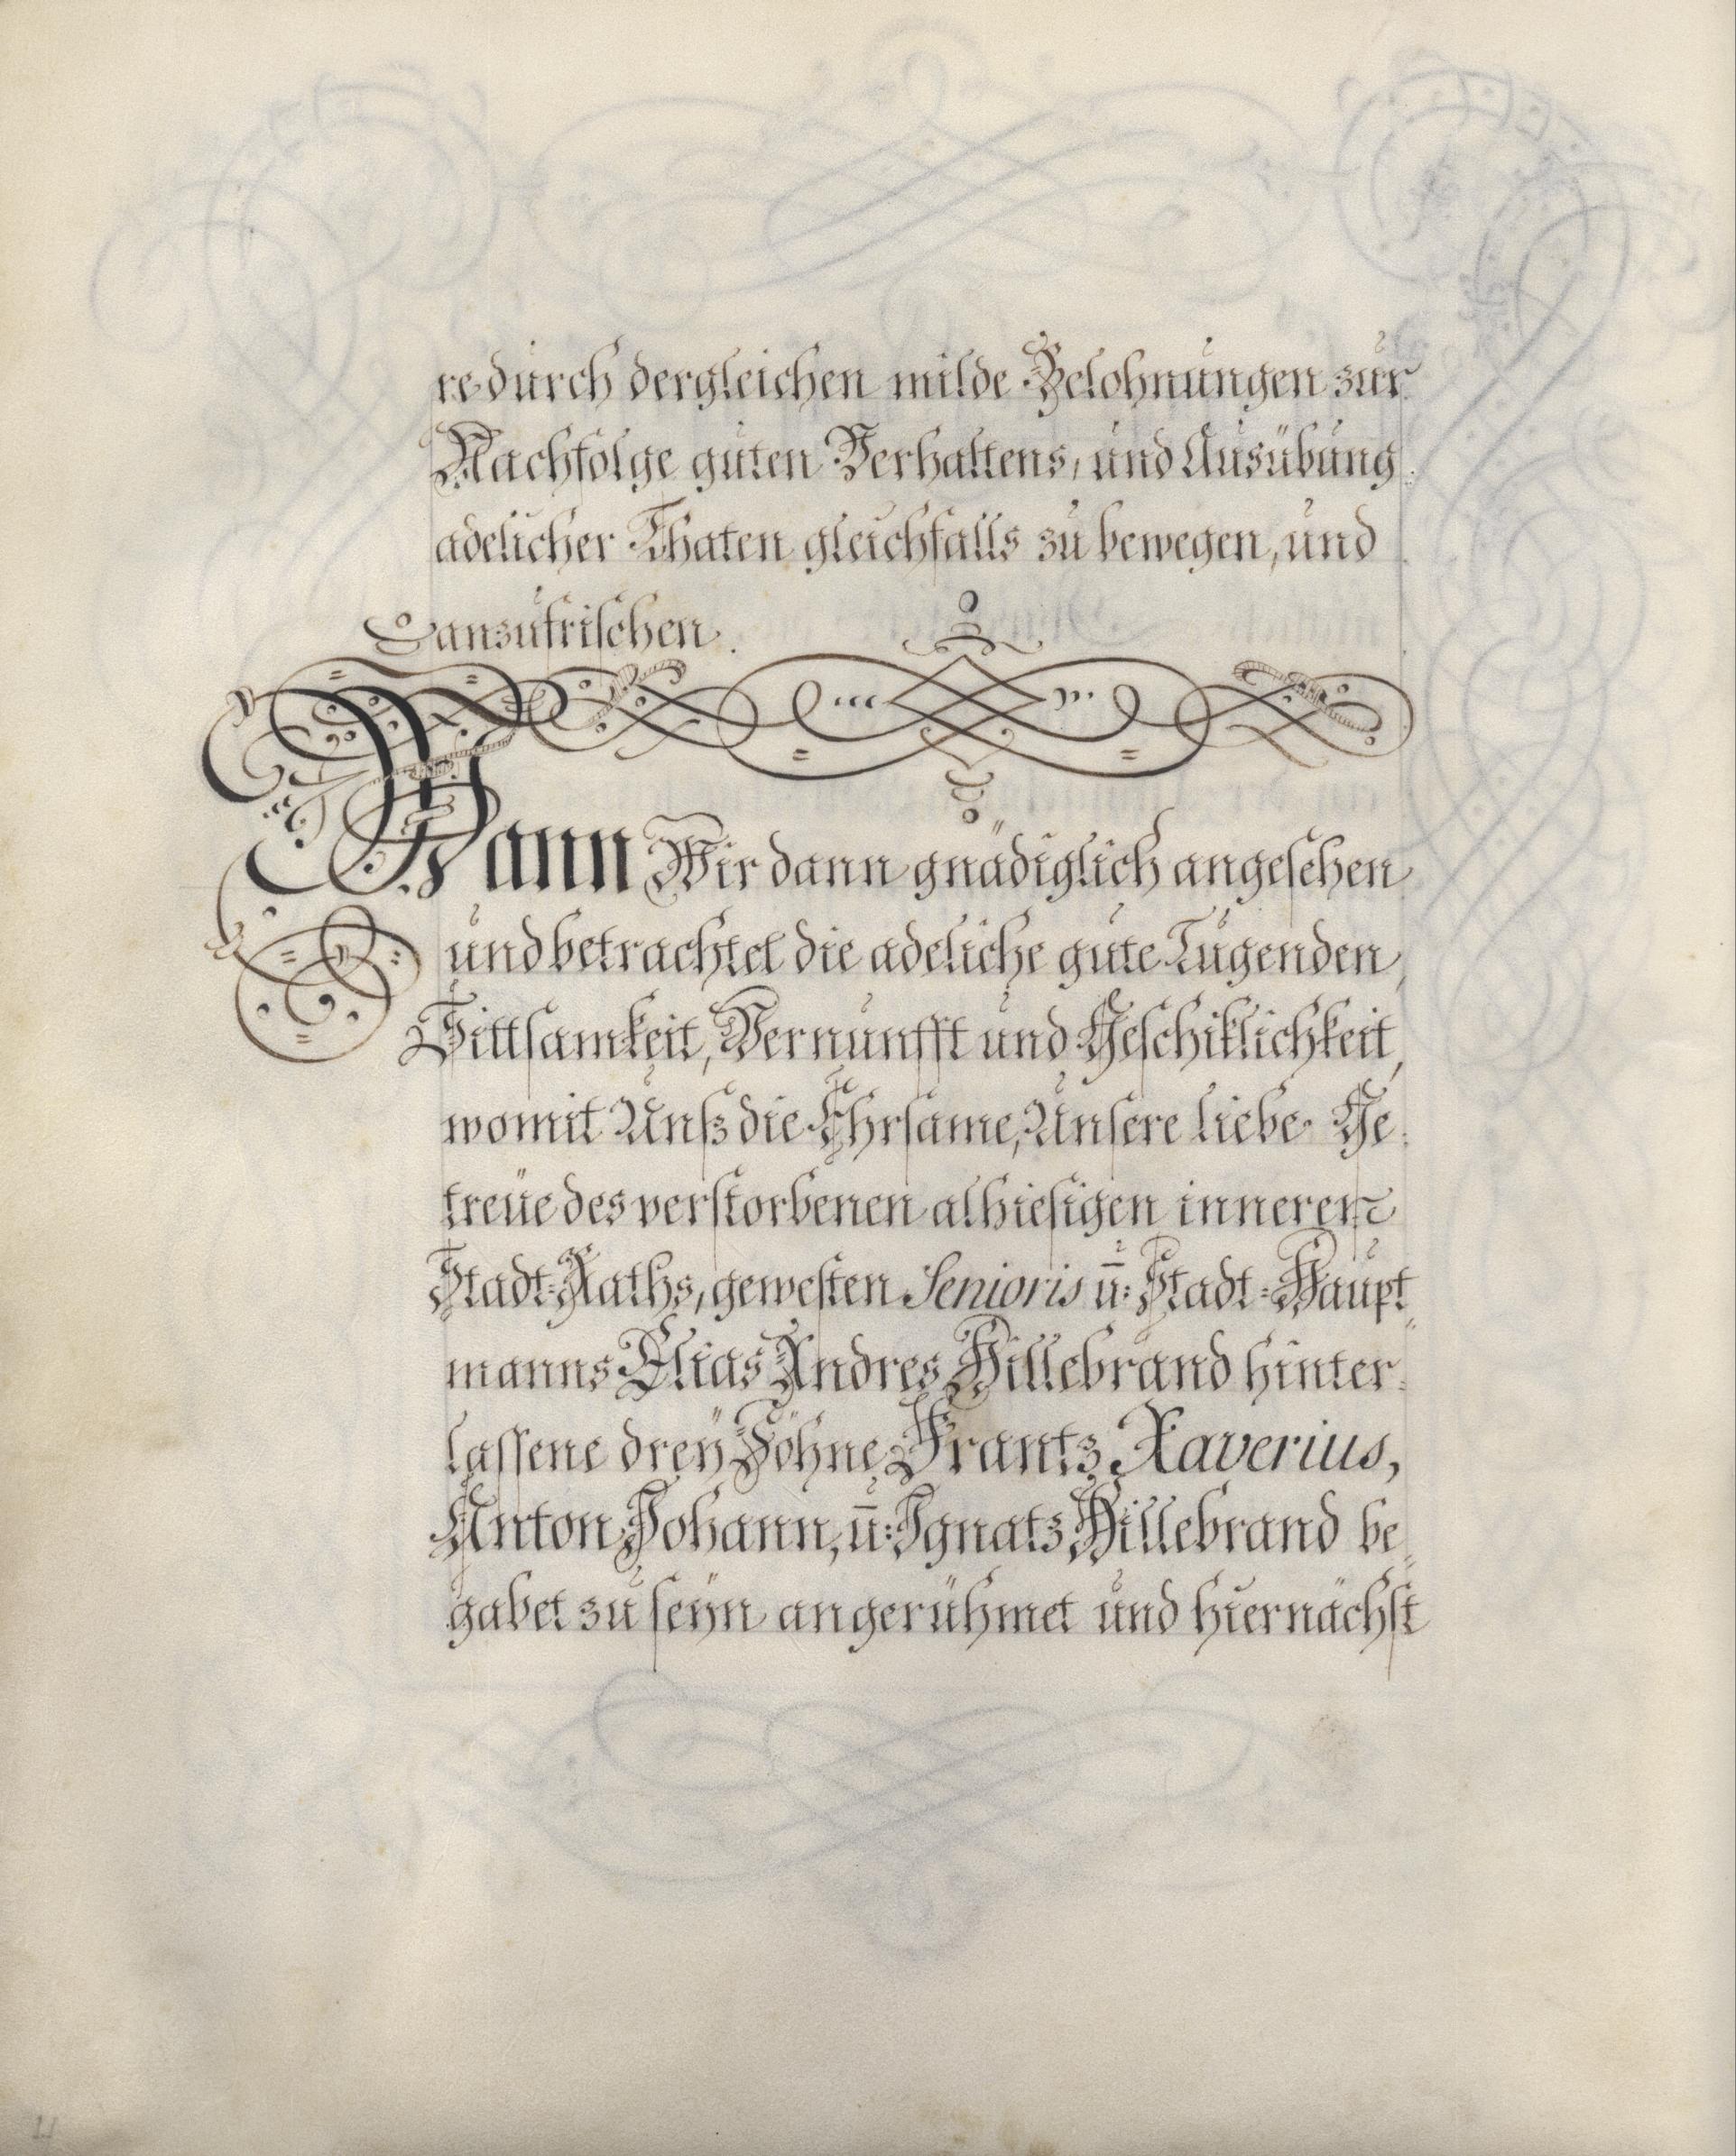 re durch dergleichen milde Belohnungen zur
Nachfolge guten Verhaltens, und Ausübung
adelicher Thaten gleichfalls zu bewegen, und
anzufrischen.
Wann Wir dann gnädiglich angesehen
und betrachtet die adeliche gute Tugenden,
Sittsamkeit, Vernunfft und Geschiklichkeit,
womit Unß die Ehrsame, Unsere liebe Ge-
treüe des verstorbenen alhiesigen inneren
Stadt-Raths, gewesten Senioris u̅: Stadt-Haupt-
manns Elias Andres Hillebrand hinter-
lassene dreÿ Söhne Frantz Xaverius,
Anton Johann, u̅: Ignatz Hillebrand be-
gabet zu seÿn angerühmet und hiernächst